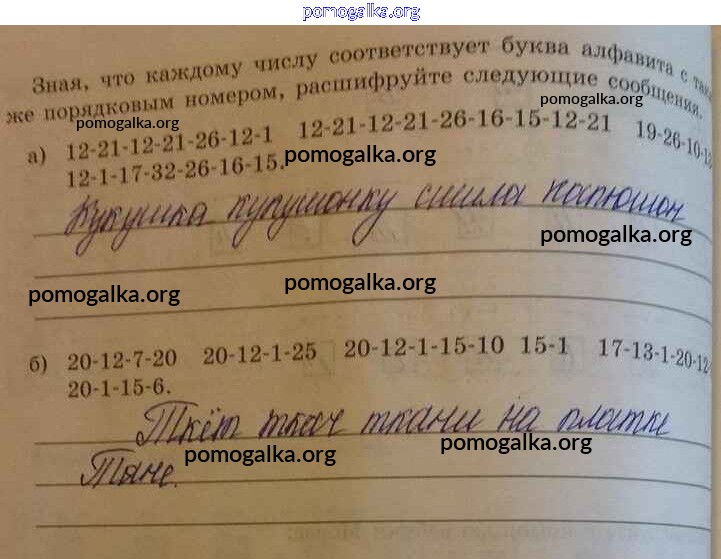 pomogalka.org
Зная, что каждому числу соответствует буква алфавита с
же порядковым номером, расшифруйте следующие сообщения.
pomogalka.org
pomogalka.org
а) 12-21-12-21-26-12-1 12-21-12-21-26-16-15-12-21 19-26-10-
12-1-17-32-26-16-15.
pomogalka.org
Кукушка кукушонку сшила капюшон
pomogalka.org
pomogalka.org
pomogalka.org
б) 20-12-7-20 20-12-1-25 20-12-1-15-10 15-1 17-13-1-20-12-
20-1-15-6.
Ткёт ткач ткани на платке
pomogalka.org
pomogalka.org
Тане.